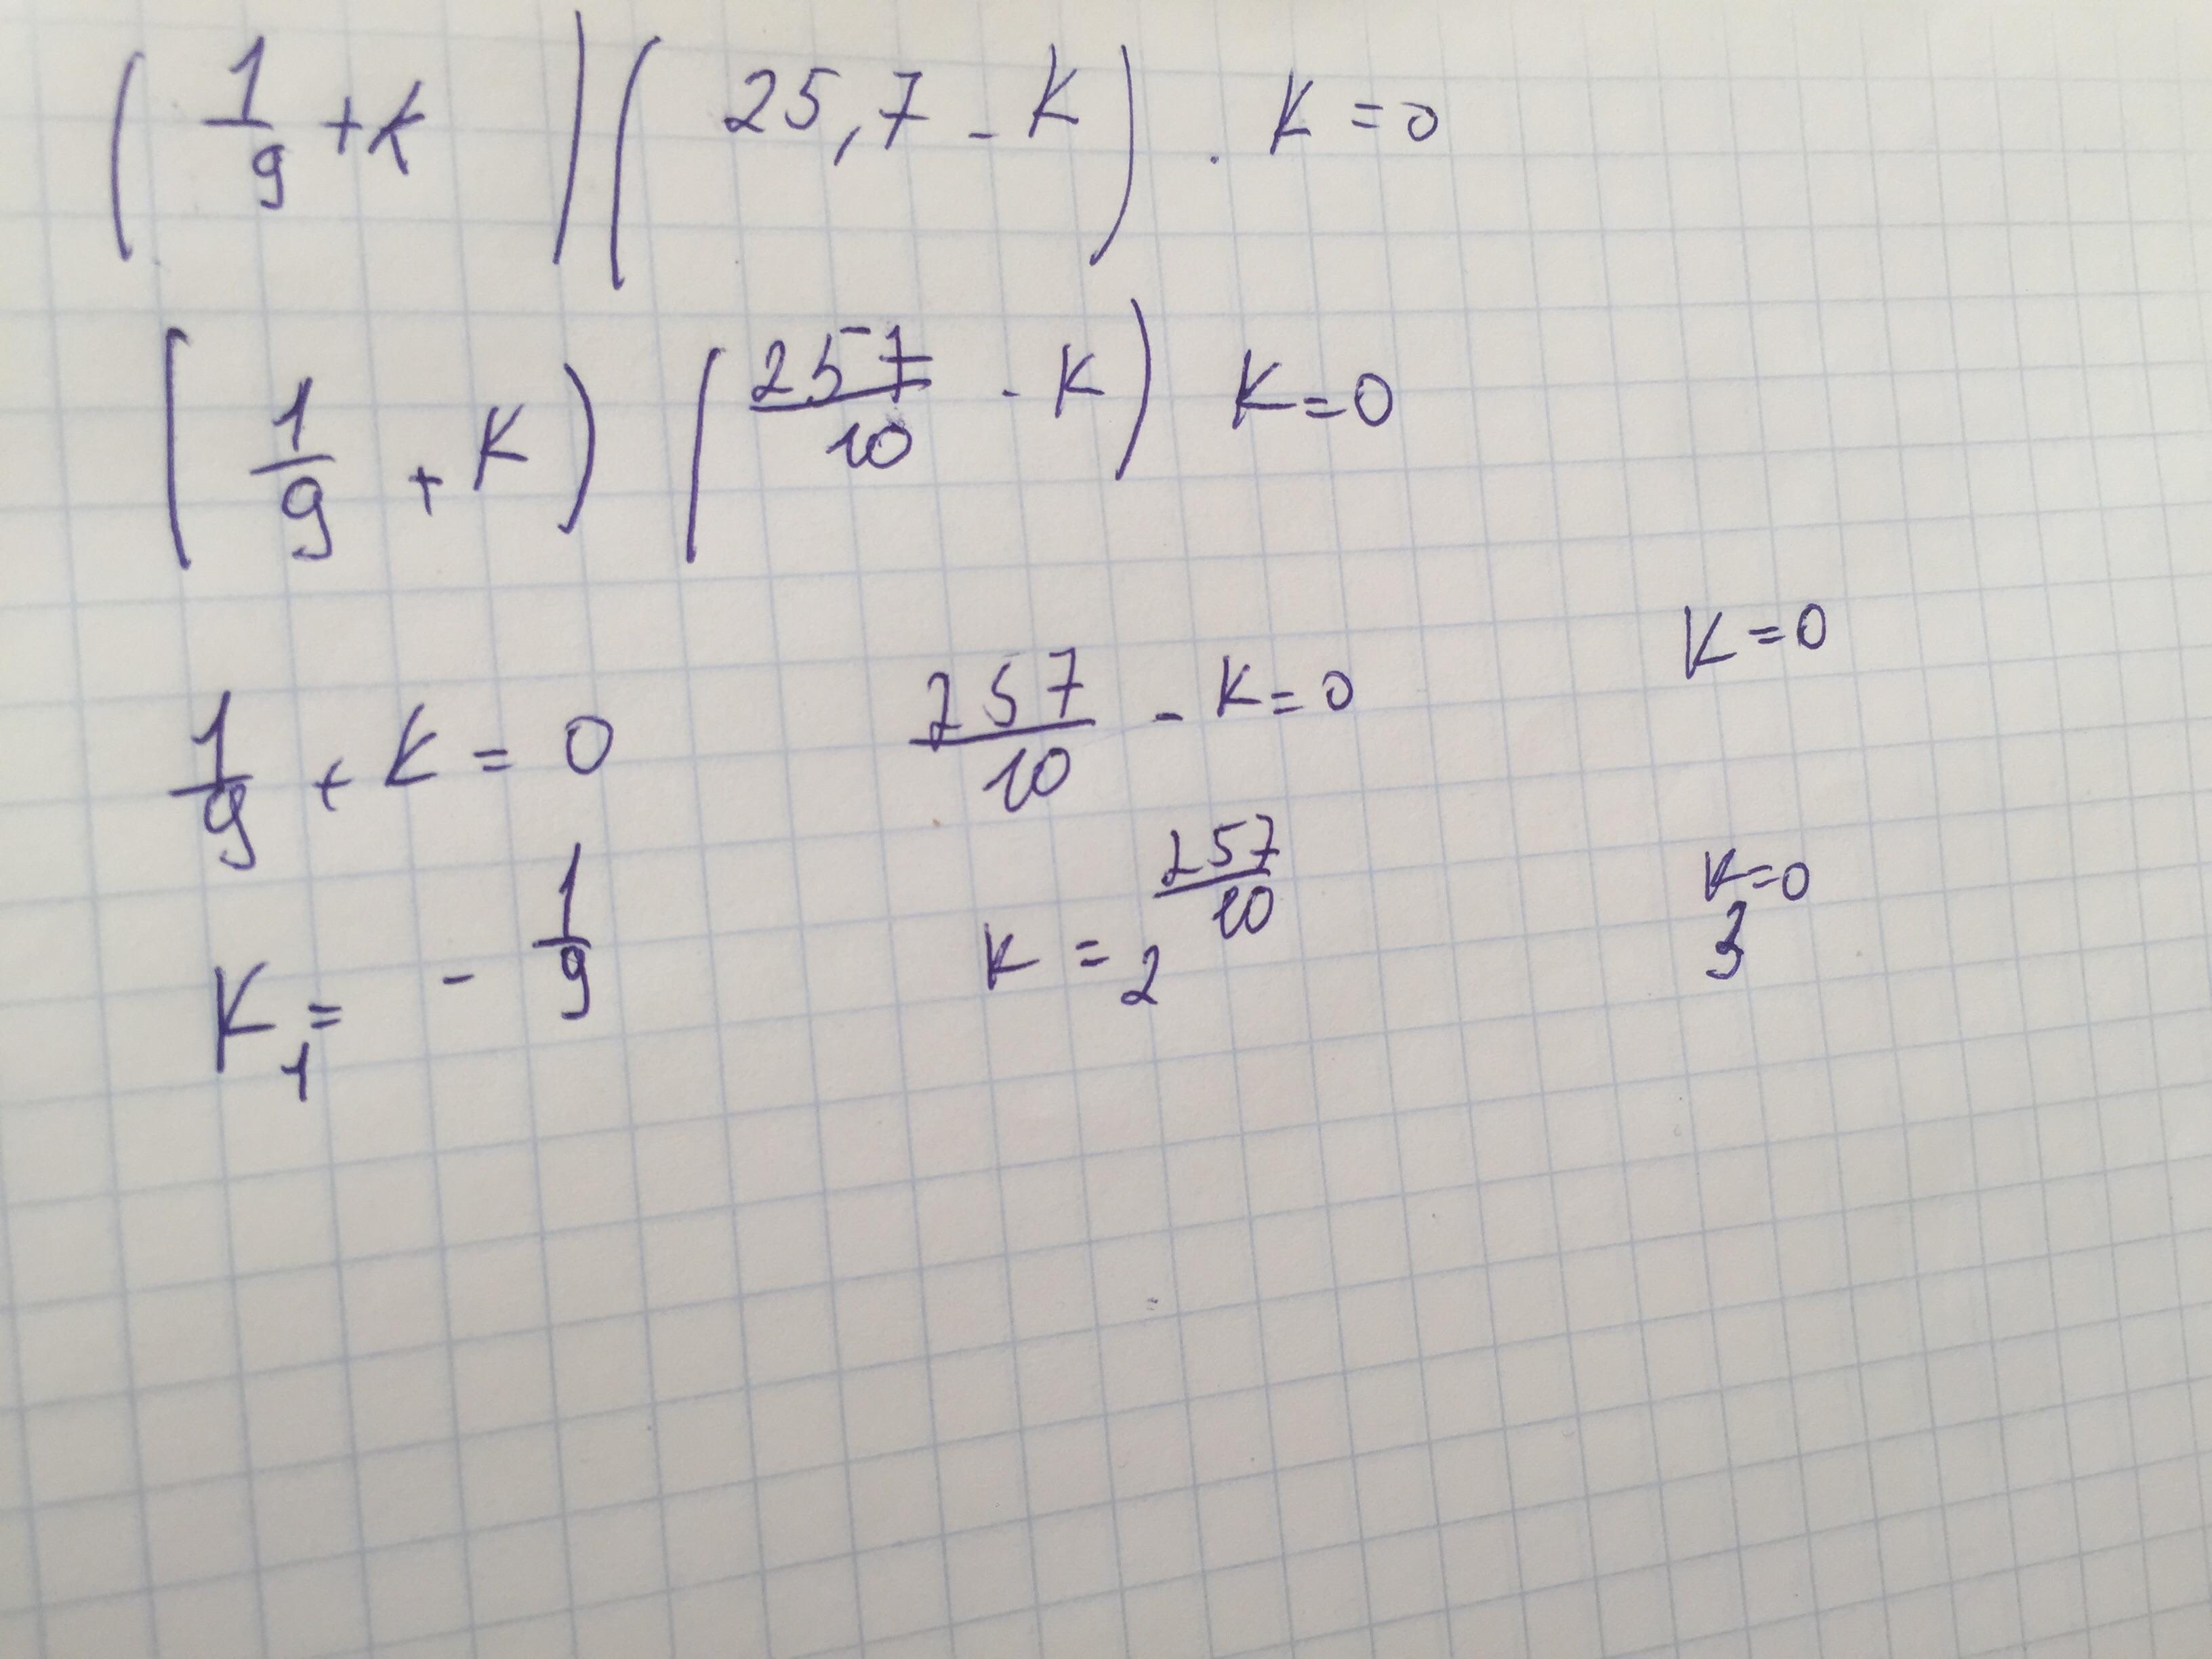 (1/9 + K)(25,7 - K) . K = 0
(1/9 + K) (257/10 - K) K = 0
1/9 + K = 0 257/10 - K = 0 K = 0
K₁ = - 1/9 K₂ = 257/10 K₃ = 0